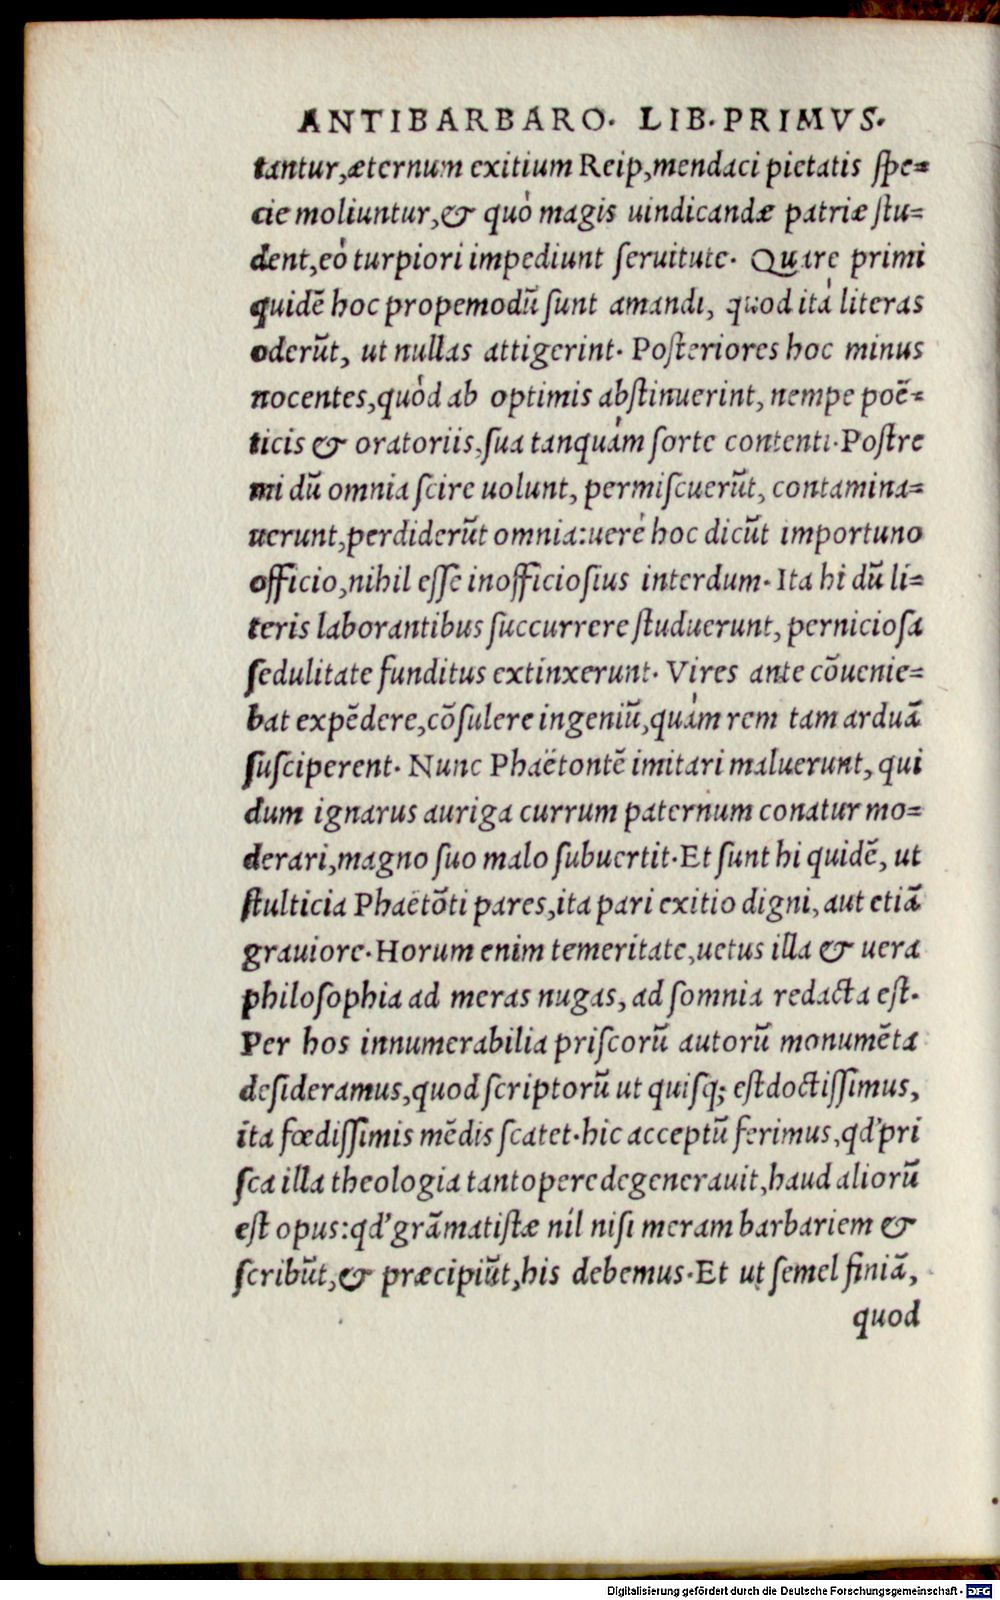 ANTIBARBARO. LIB. PRIMVS.
tantur, æternum exitium Reip, mendaci pietatis ſpe=
cie moliuntur, & quò magis uindicandæ patriæ ſtu=
dent, eò turpiori impediunt ſeruitute. Quare primi
quidē hoc propemodū ſunt amandi, quod ità literas
oderūt, ut nullas attigerint. Poſteriores hoc minus
nocentes, quòd ab optimis abſtinuerint, nempe poē=
ticis & oratoriis, ſua tanquàm ſorte contenti. Poſtre
mi dū omnia ſcire uolunt, permiſcuerūt, contamina=
uerunt, perdiderūt omnia: uerè hoc dicūt importuno
officio, nihil eſſe inofficioſius interdum. Ita hi dū li=
teris laborantibus ſuccurrere ſtuduerunt, pernicioſa
ſedulitate funditus extinxerunt. Vires ante cōuenie=
bat expēdere, cōſulere ingeniū, quàm rem tam arduā
ſuſciperent. Nunc Phaëtontē imitari maluerunt, qui
dum ignarus auriga currum paternum conatur mo=
derari, magno ſuo malo ſubuertit. Et ſunt hi quidē, ut
ſtulticia Phaëtōti pares, ita pari exitio digni, aut etiā
grauiore. Horum enim temeritate, uetus illa & uera
philoſophia ad meras nugas, ad ſomnia redacta eſt.
Per hos innumerabilia priſcorū autorū monumēta
deſideramus, quod ſcriptorū ut quiſq; eſt doctiſſimus,
ita fœdiſſimis mēdis ſcatet. hic acceptū ferimus, qd' pri
ſca illa theologia tantopere degenerauit, haud aliorū
eſt opus: qd' grāmatiſtæ nil niſi meram barbariem &
ſcribūt, & præcipiūt, his debemus. Et ut ſemel finiā,
quod
Digitalisierung gefördert durch die Deutsche Forschungsgemeinschaft - DFG